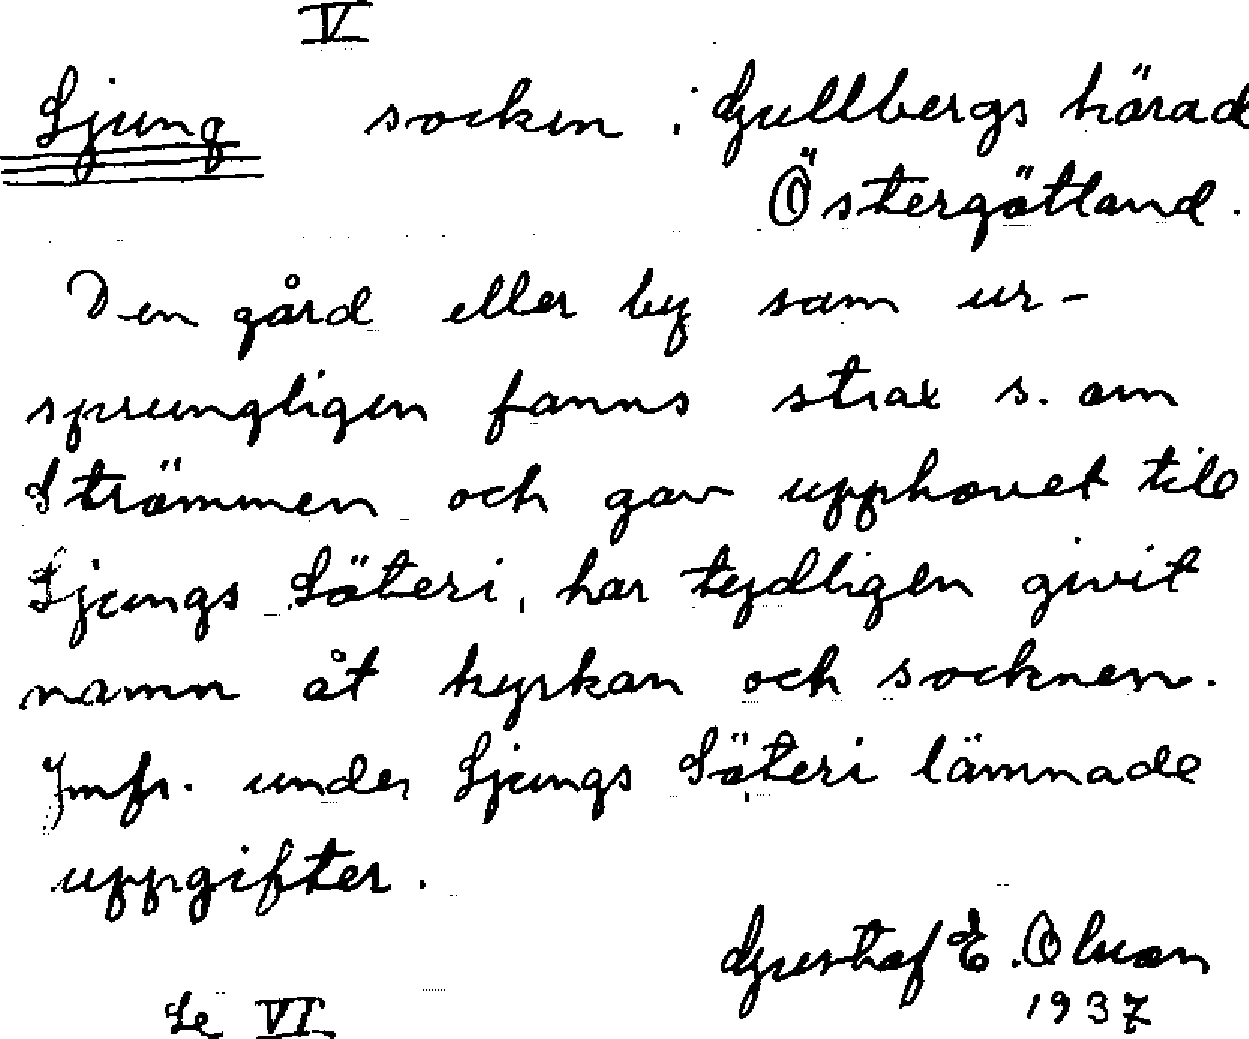 V
Ljung socken i Gullbergs härad
Östergötland.
Den gård eller by som ur-
sprungligen fanns strax s. om
Strömmen och gav upphovet till
Ljungs Säteri, har tydligen givit
namn åt kyrkan och socknen.
Jmfr. under Ljungs Säteri lämnade
uppgifter.
Gustaf E. Olson
1937
Se VI